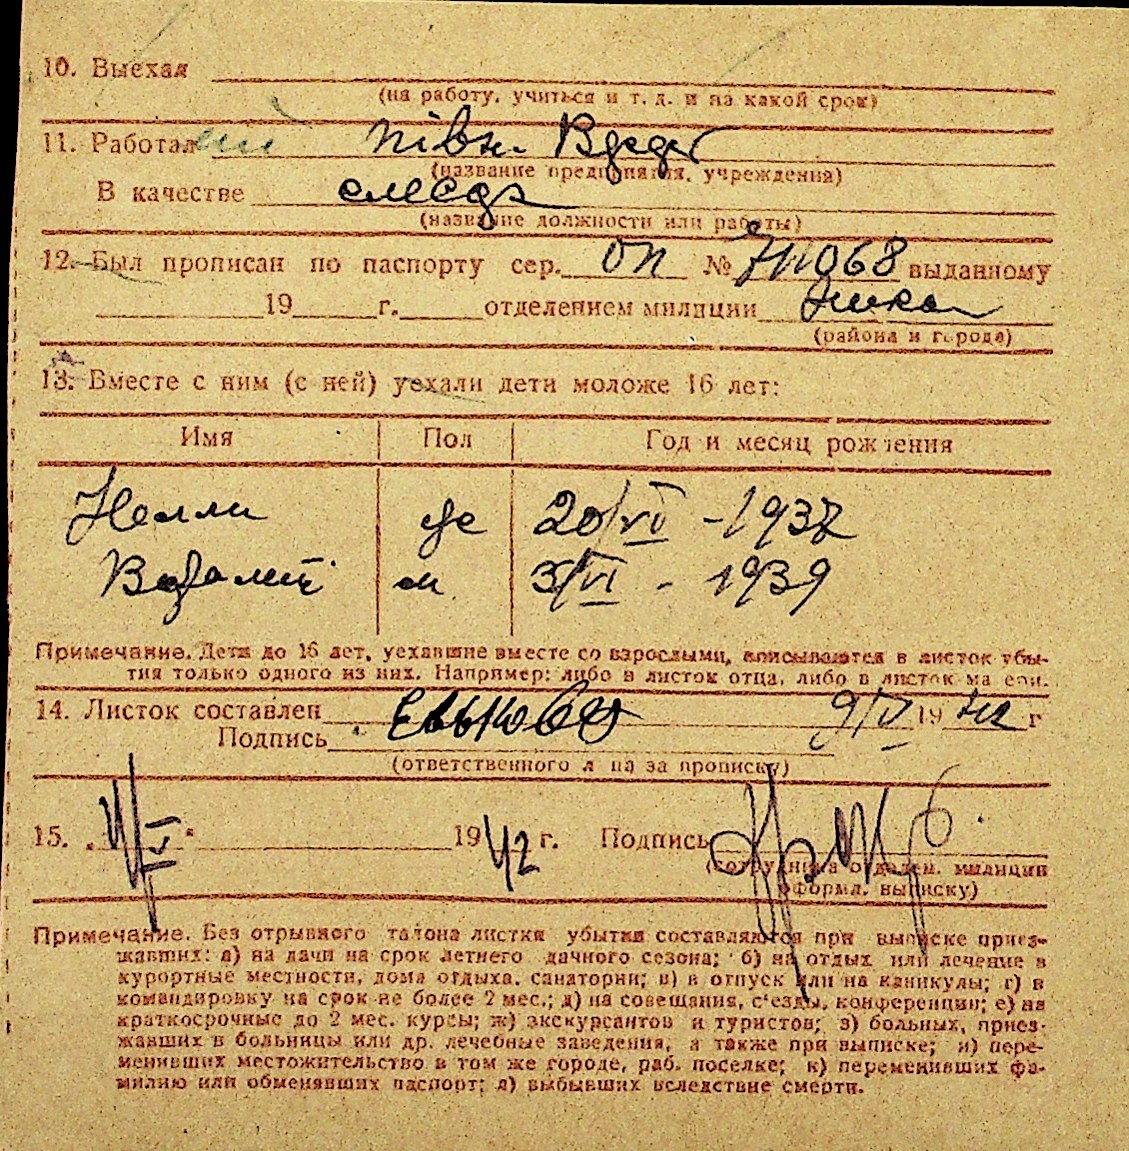 10. Выехал
(на работу, учиться и т. д. и на какой срок)
11. Работал півн.
(название предприятия, учреждения)
В качестве
(название должности или работы)
12. Был прописан по паспорту сер. ОП № 711068 выданному
19 г. отделением милиции
(района и города)
13. Вместе с ним (с ней) уехали дети моложе 16 лет:
Имя Пол Год и месяц рождения
Нелли же 20/VI - 1937
м 3/VI - 1939
Примечание. Дети до 16 лет, уехавшие вместе со взрослыми, вписываются в листок убы-
тия только одного из них. Например: либо в листок отца, либо в листок матери.
14. Листок составлен 9/V 1942 г
Подпись
(ответственного лица за прописку)
15. " 11/V " 1942 г. Подпись
(сотрудника отделен. милиции
оформл. выписку)
Примечание. Без отрывного талона листки убытия составляются при выписке приез-
жавших: а) на дачи на срок летнего дачного сезона; б) на отдых или лечение в
курортные местности, дома отдыха, санатории; в) в отпуск или на каникулы; г) в
командировку на срок не более 2 мес.; д) на совещания, съезды, конференции; е) на
краткосрочные до 2 мес. курсы; ж) экскурсантов и туристов; з) больных, приез-
жавших в больницы или др. лечебные заведения, а также при выписке; и) пере-
менивших местожительство в том же городе, раб. поселке; к) переменивших фа-
милию или обменявших паспорт; л) выбывших вследствие смерти.